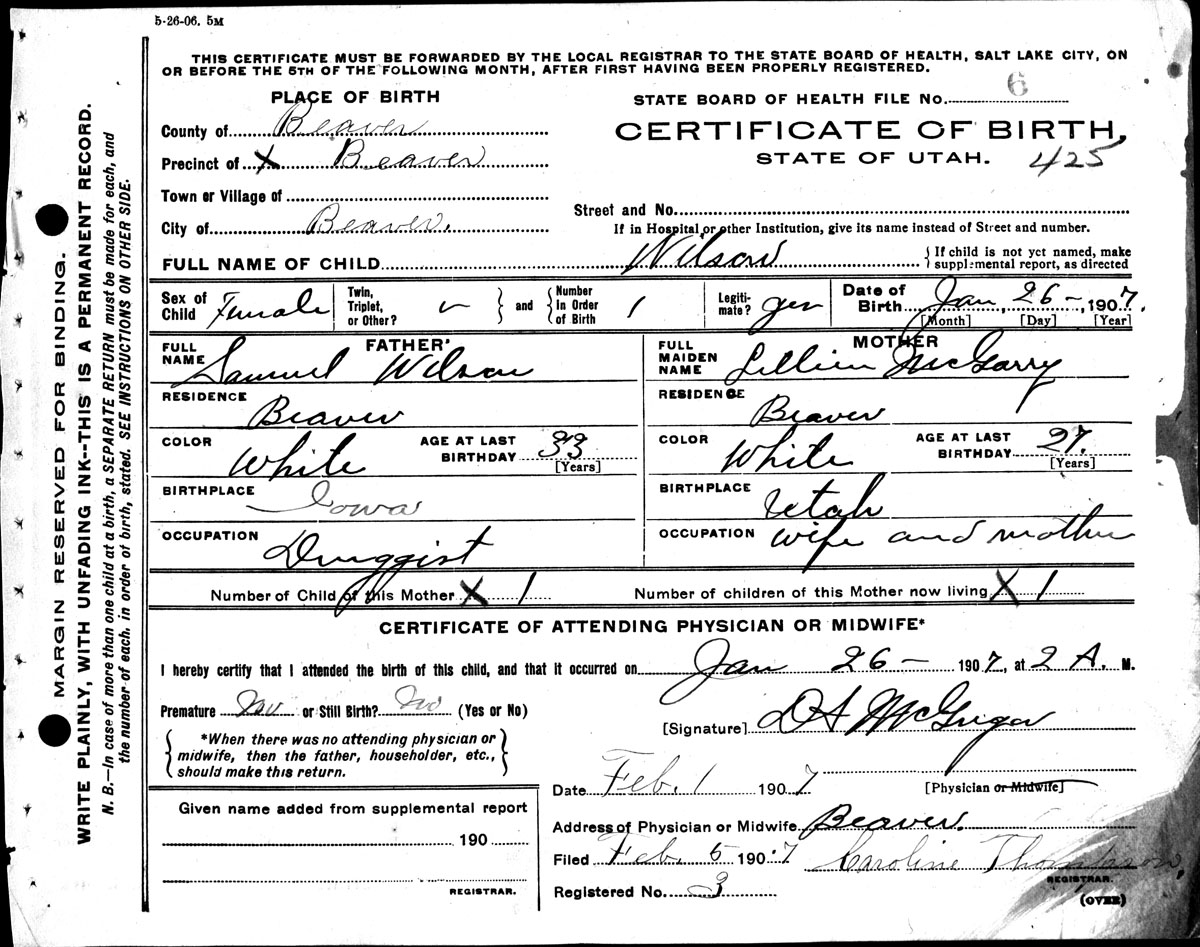 5-26-06. 5M
THIS CERTIFICATE MUST BE FORWARDED BY THE LOCAL REGISTRAR TO THE STATE BOARD OF HEALTH, SALT LAKE CITY, ON
OR BEFORE THE 5TH OF THE FOLLOWING MONTH, AFTER FIRST HAVING BEEN PROPERLY REGISTERED.
PLACE OF BIRTH
STATE BOARD OF HEALTH FILE No. 6
County of Beaver
CERTIFICATE OF BIRTH,
Precinct of X Beaver
STATE OF UTAH. 425
Town or Village of
Street and No.
City of Beaver.
If in Hospital or other Institution, give its name instead of Street and number.
FULL NAME OF CHILD Wilson { If child is not yet named, make
supplemental report, as directed
Sex of Child Female
Twin, Triplet, or Other? } and { Number in Order of Birth 1
Legitimate? yes
Date of Birth Jan, 26-, 1907.
[Month] [Day] [Year]
FATHER
FULL NAME Samuel Wilson
RESIDENCE Beaver
COLOR White AGE AT LAST BIRTHDAY 33 [Years]
BIRTHPLACE Iowa
OCCUPATION Druggist
MOTHER
FULL MAIDEN NAME Lillian McGarry
RESIDENCE Beaver
COLOR White AGE AT LAST BIRTHDAY 27. [Years]
BIRTHPLACE Utah
OCCUPATION wife and mother
Number of Child of this Mother X 1 Number of children of this Mother now living X 1
CERTIFICATE OF ATTENDING PHYSICIAN OR MIDWIFE*
I hereby certify that I attended the birth of this child, and that it occurred on Jan 26- 1907, at 2 A. M.
Premature No or Still Birth? No (Yes or No)
[Signature] D A McGregor
{ *When there was no attending physician or
midwife, then the father, householder, etc.,
should make this return. }
Date Feb. 1 1907 [Physician or Midwife]
Given name added from supplemental report
190
REGISTRAR.
Address of Physician or Midwife Beaver.
Filed Feb. 5 1907 Caroline Thompson,
REGISTRAR.
Registered No. 3
(OVER)
MARGIN RESERVED FOR BINDING.
WRITE PLAINLY, WITH UNFADING INK--THIS IS A PERMANENT RECORD.
N. B.—In case of more than one child at a birth, a SEPARATE RETURN must be made for each, and
the number of each, in order of birth, stated. SEE INSTRUCTIONS ON OTHER SIDE.